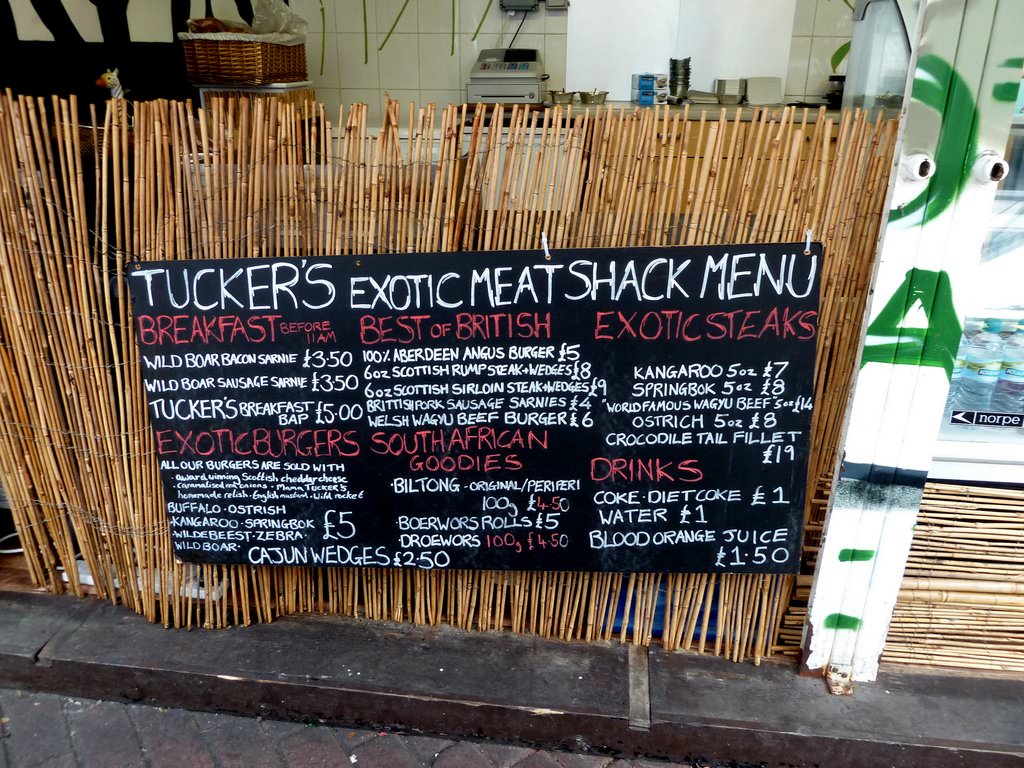 TUCKER'S EXOTIC MEAT SHACK MENU
BREAKFAST BEFORE 11AM
WILD BOAR BACON SARNIE £3·50
WILD BOAR SAUSAGE SARNIE £3·50
TUCKER'S BREAKFAST BAP £5·00
EXOTIC BURGERS
ALL OUR BURGERS ARE SOLD WITH
- award winning Scottish cheddar cheese
- caramalised red onions - MAMA TUCKER'S
homemade relish - English mustard - Wild rocket
BUFFALO · OSTRICH
KANGAROO · SPRINGBOK
WILDEBEEST · ZEBRA
WILD BOAR · £5
CAJUN WEDGES £2·50
BEST OF BRITISH
100% ABERDEEN ANGUS BURGER £5
6oz SCOTTISH RUMP STEAK + WEDGES £8
6oz SCOTTISH SIRLOIN STEAK + WEDGES £9
BRITTISH PORK SAUSAGE SARNIES £4
WELSH WAGYU BEEF BURGER £6
SOUTH AFRICAN
GOODIES
· BILTONG - ORIGINAL/PERIPERI
100g £4·50
· BOERWORS ROLLS £5
· DROEWORS 100g £4·50
EXOTIC STEAKS
KANGAROO 5oz £7
SPRINGBOK 5oz £8
"WORLD FAMOUS WAGYU BEEF" 5oz £14
OSTRICH 5oz £8
CROCODILE TAIL FILLET
£19
DRINKS
COKE · DIET COKE £1
WATER £1
BLOOD ORANGE JUICE
£1·50
norpe